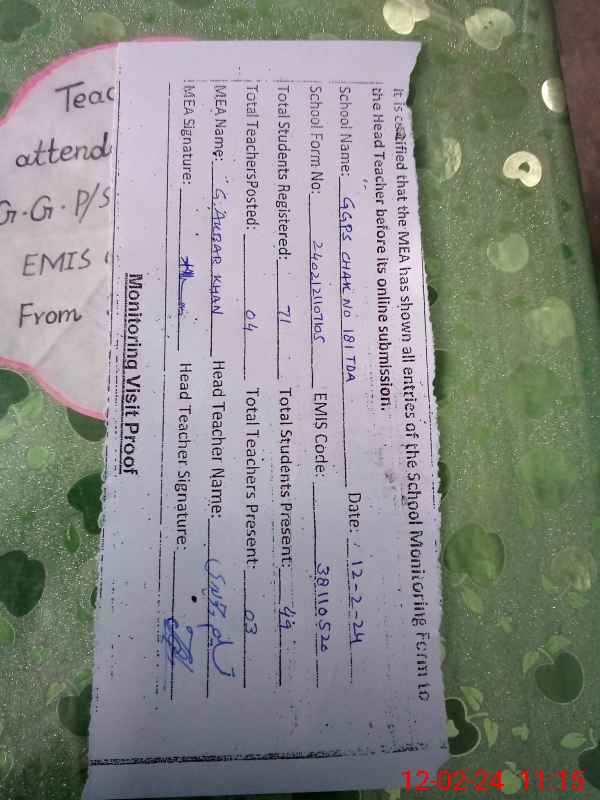 It is certified that the MEA has shown all entries of the School Monitoring Form to
the Head Teacher before its online submission.
School Name: GGPS CHAK NO 181 TDA Date: 12-2-24
School Form No: 2402121107105 EMIS Code: 38110520
Total Students Registered: 71 Total Students Present: 49
Total TeachersPosted: 04 Total Teachers Present: 03
MEA Name: G. AKBAR KHAN Head Teacher Name:
MEA Signature: Head Teacher Signature:
Monitoring Visit Proof
Teac
attend
G.G.P/S
EMIS
From
12-02-24 11:15